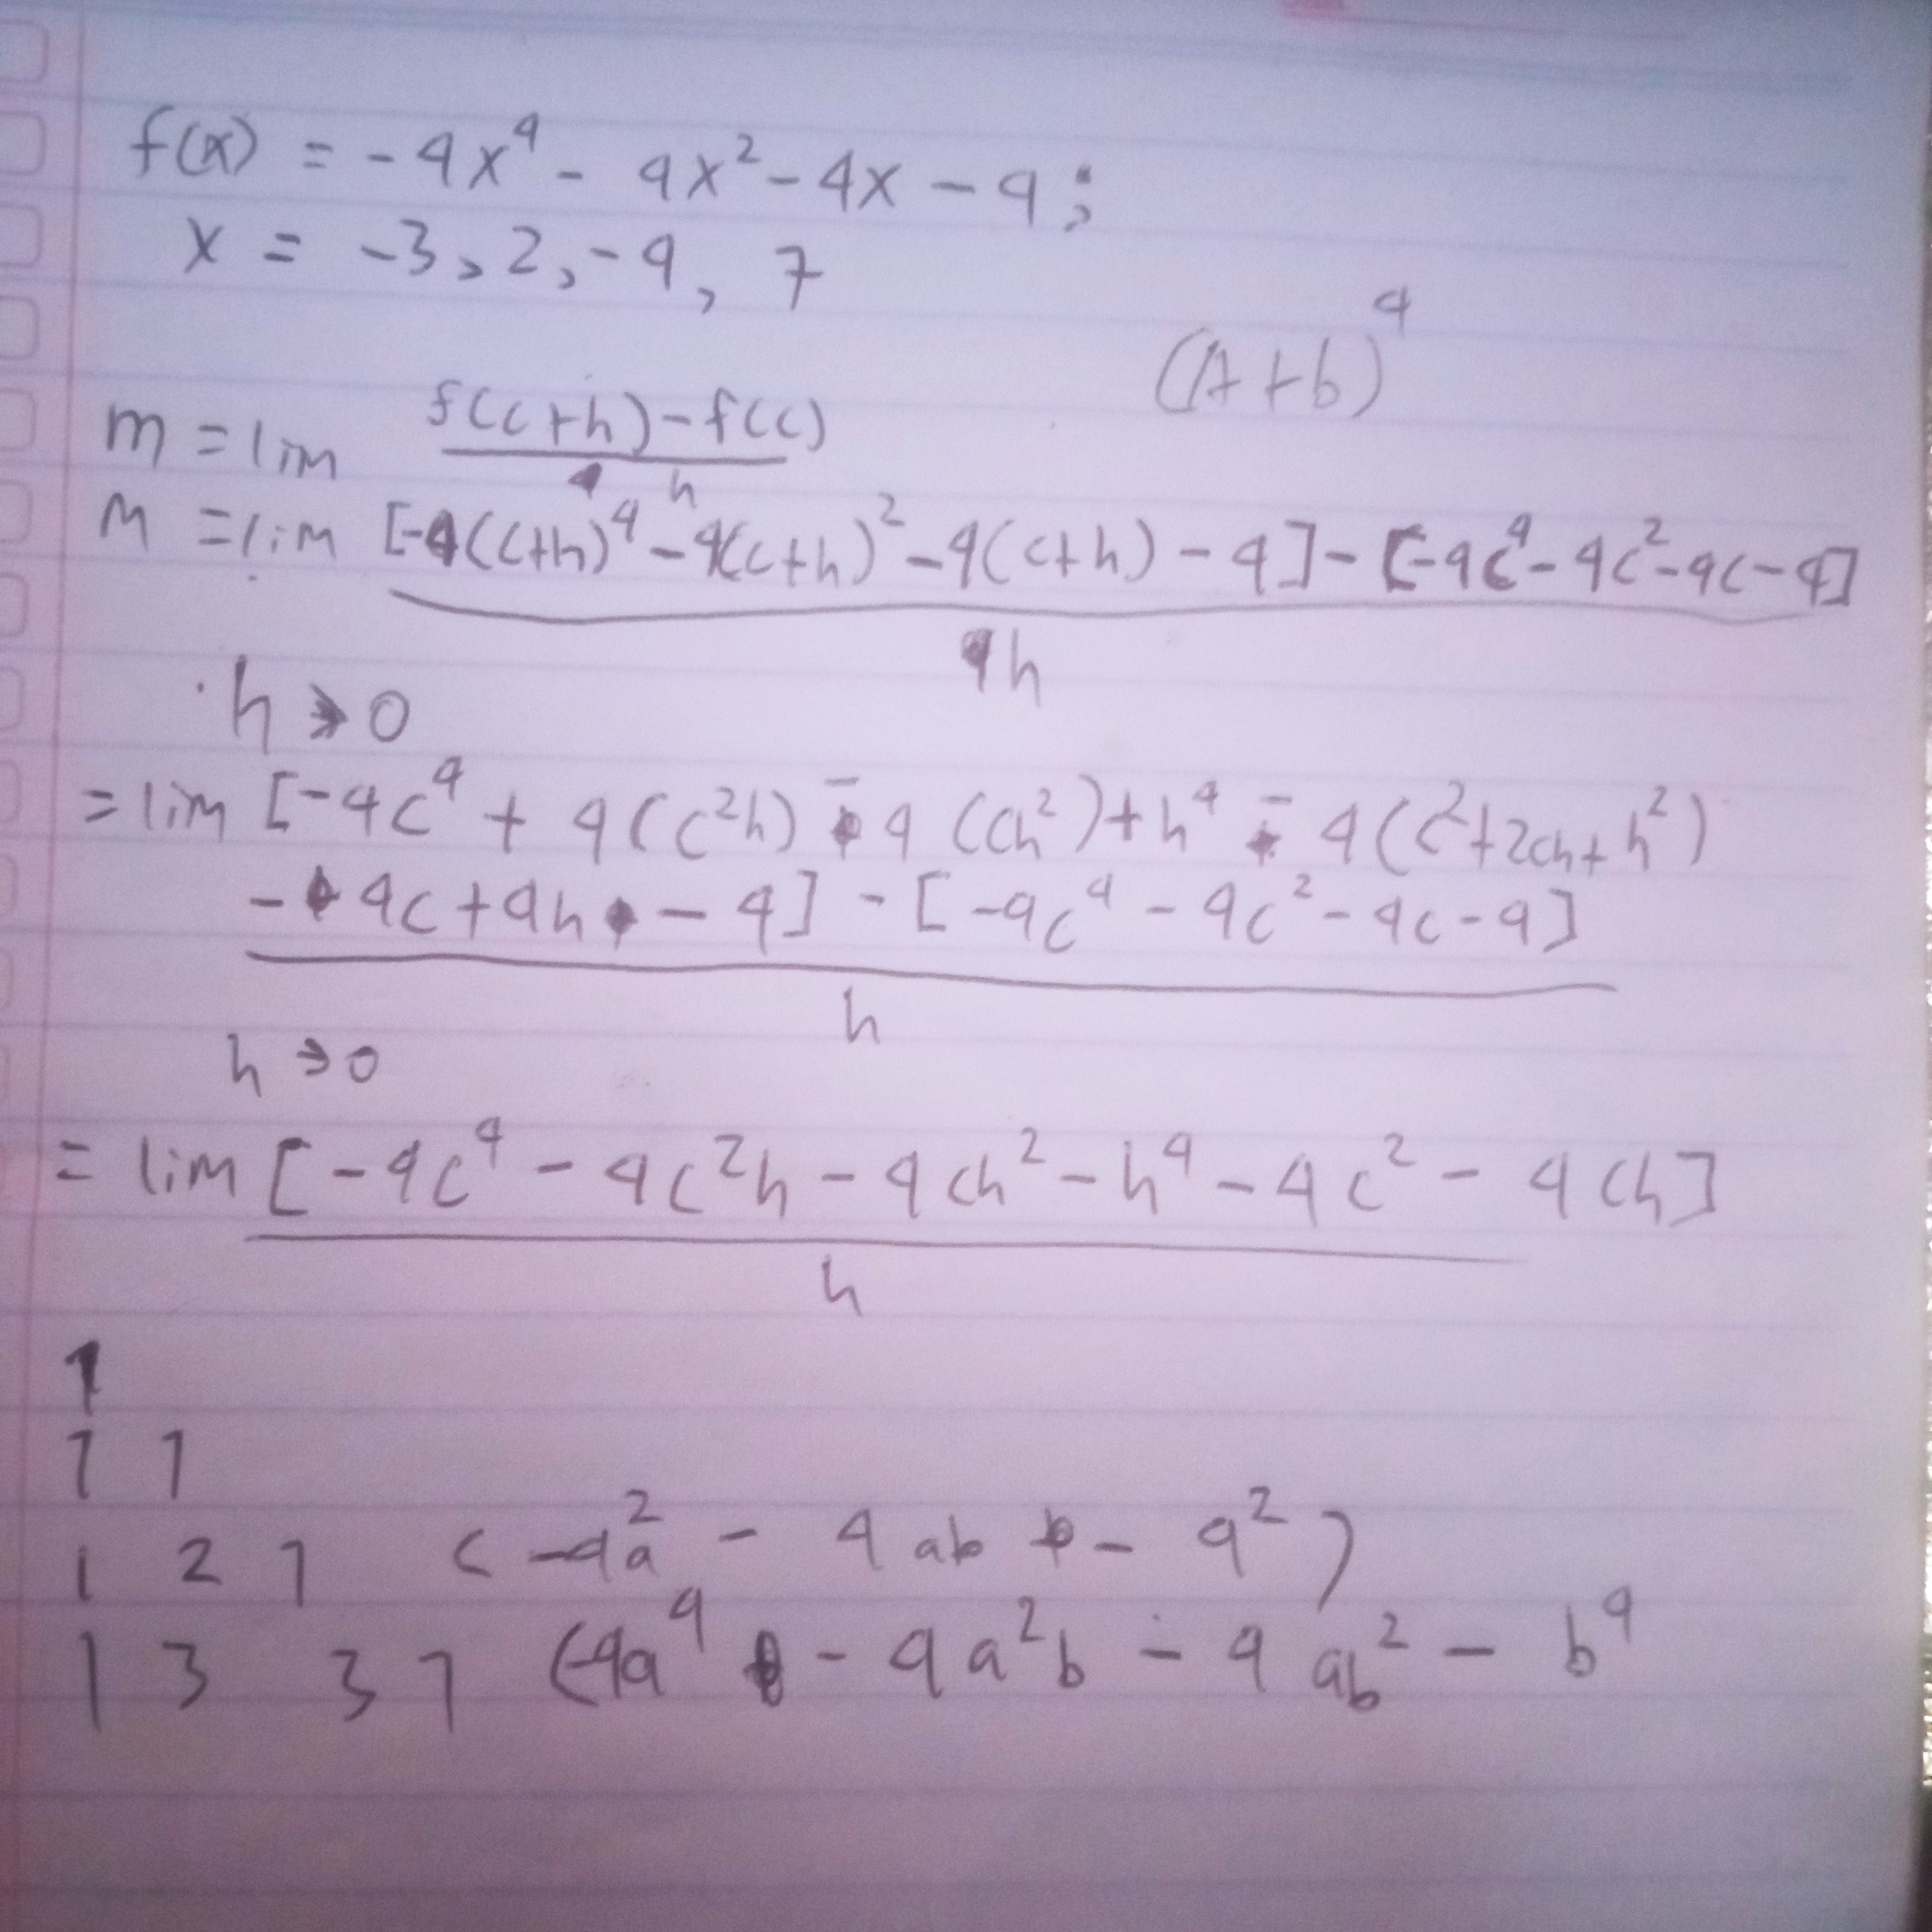 f(x) = -4x⁴ - 4x² - 4x - 4;
x = -3, 2, -4, 7
(A+b)⁴
m = lim f(c+h) - f(c)
h
m = lim [-4(c+h)⁴ - 4(c+h)² - 4(c+h) - 4] - [-4c⁴ - 4c² - 4c - 4]
h
h → 0
= lim [-4c⁴ + 4(c²h) - 4(ch²) + h⁴ - 4(c² + 2ch + h²)
- 4c + 4h - 4] - [-4c⁴ - 4c² - 4c - 4]
h
h → 0
= lim [-4c⁴ - 4c²h - 4ch² - h⁴ - 4c² - 4ch]
h
1
1 1
1 2 1 (-4a² - 4ab - 4²)
1 3 3 1 (-4a⁴ - 4a²b - 4ab² - b⁴